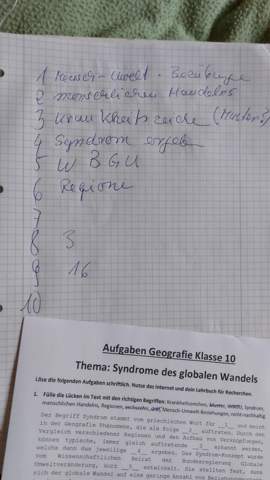 1 Mensch-Umwelt-Beziehungen
2 menschlichen Handelns
3 Krankheitszeichen (Muster
4 Syndrom
5 WBGU
6 Regionen
7
8 3
9 16
10
Aufgaben Geografie Klasse 10
Thema: Syndrome des globalen Wandels
Löse die folgenden Aufgaben schriftlich. Nutze das Internet und dein Lehrbuch für Recherchen.
1. Fülle die Lücken im Text mit den richtigen Begriffen: Krankheitszeichen, Muster, WBGU, Syndrom,
menschlichen Handelns, Regionen, sechszehn, drei, Mensch-Umwelt-Beziehungen, nicht-nachhaltig
Der Begriff Syndrom stammt vom griechischen Wort für __3__ und meint
in der Geografie Phänomene, die als Folge __2__ auftreten. Durch den
Vergleich verschiedener Regionen und den Aufbau von
können typische, immer gleich auftretende __ erkannt werden,
welche dann das jeweilige __4__ ergeben. Das Syndrom-Konzept wurde
vom Wissenschaftlichen Beirat der Bundesregierung Globale
Umweltveränderung, kurz __5__ entwickelt. Sie stellten fest, dass
sich der globale Wandel auf eine geringe Anzahl von